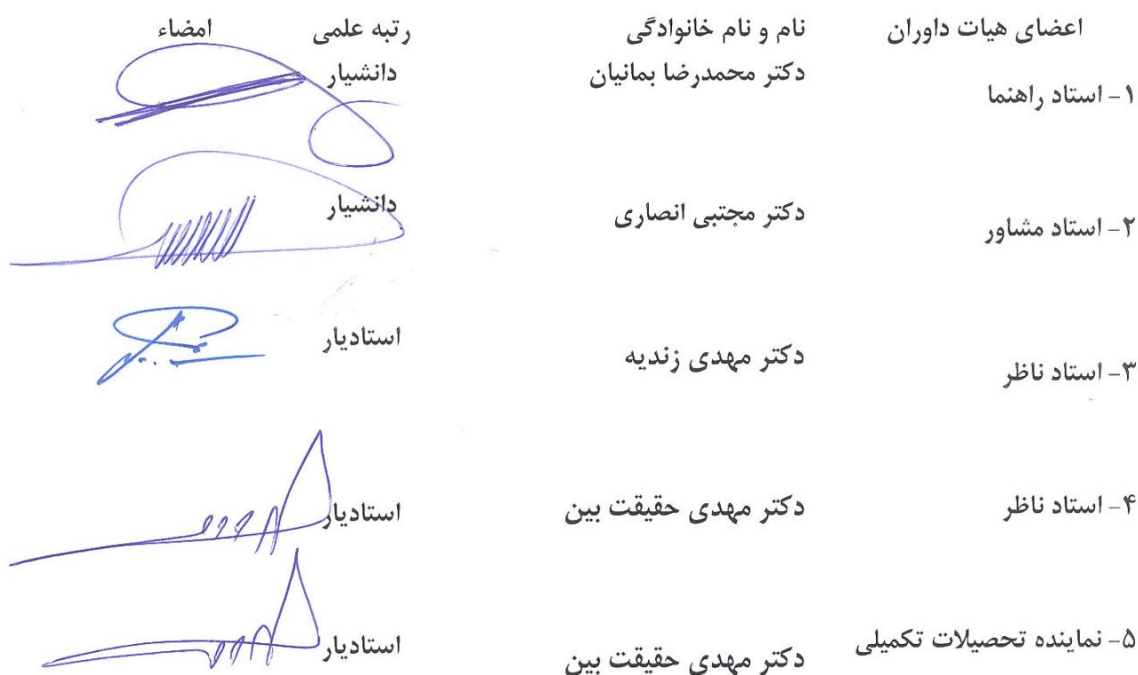 اعضای هیات داوران نام و نام خانوادگی رتبه علمی امضاء
۱- استاد راهنما دکتر محمدرضا بمانیان دانشیار
۲- استاد مشاور دکتر مجتبی انصاری دانشیار
۳- استاد ناظر دکتر مهدی زندیه استادیار
۴- استاد ناظر دکتر مهدی حقیقت بین استادیار
۵- نماینده تحصیلات تکمیلی دکتر مهدی حقیقت بین استادیار